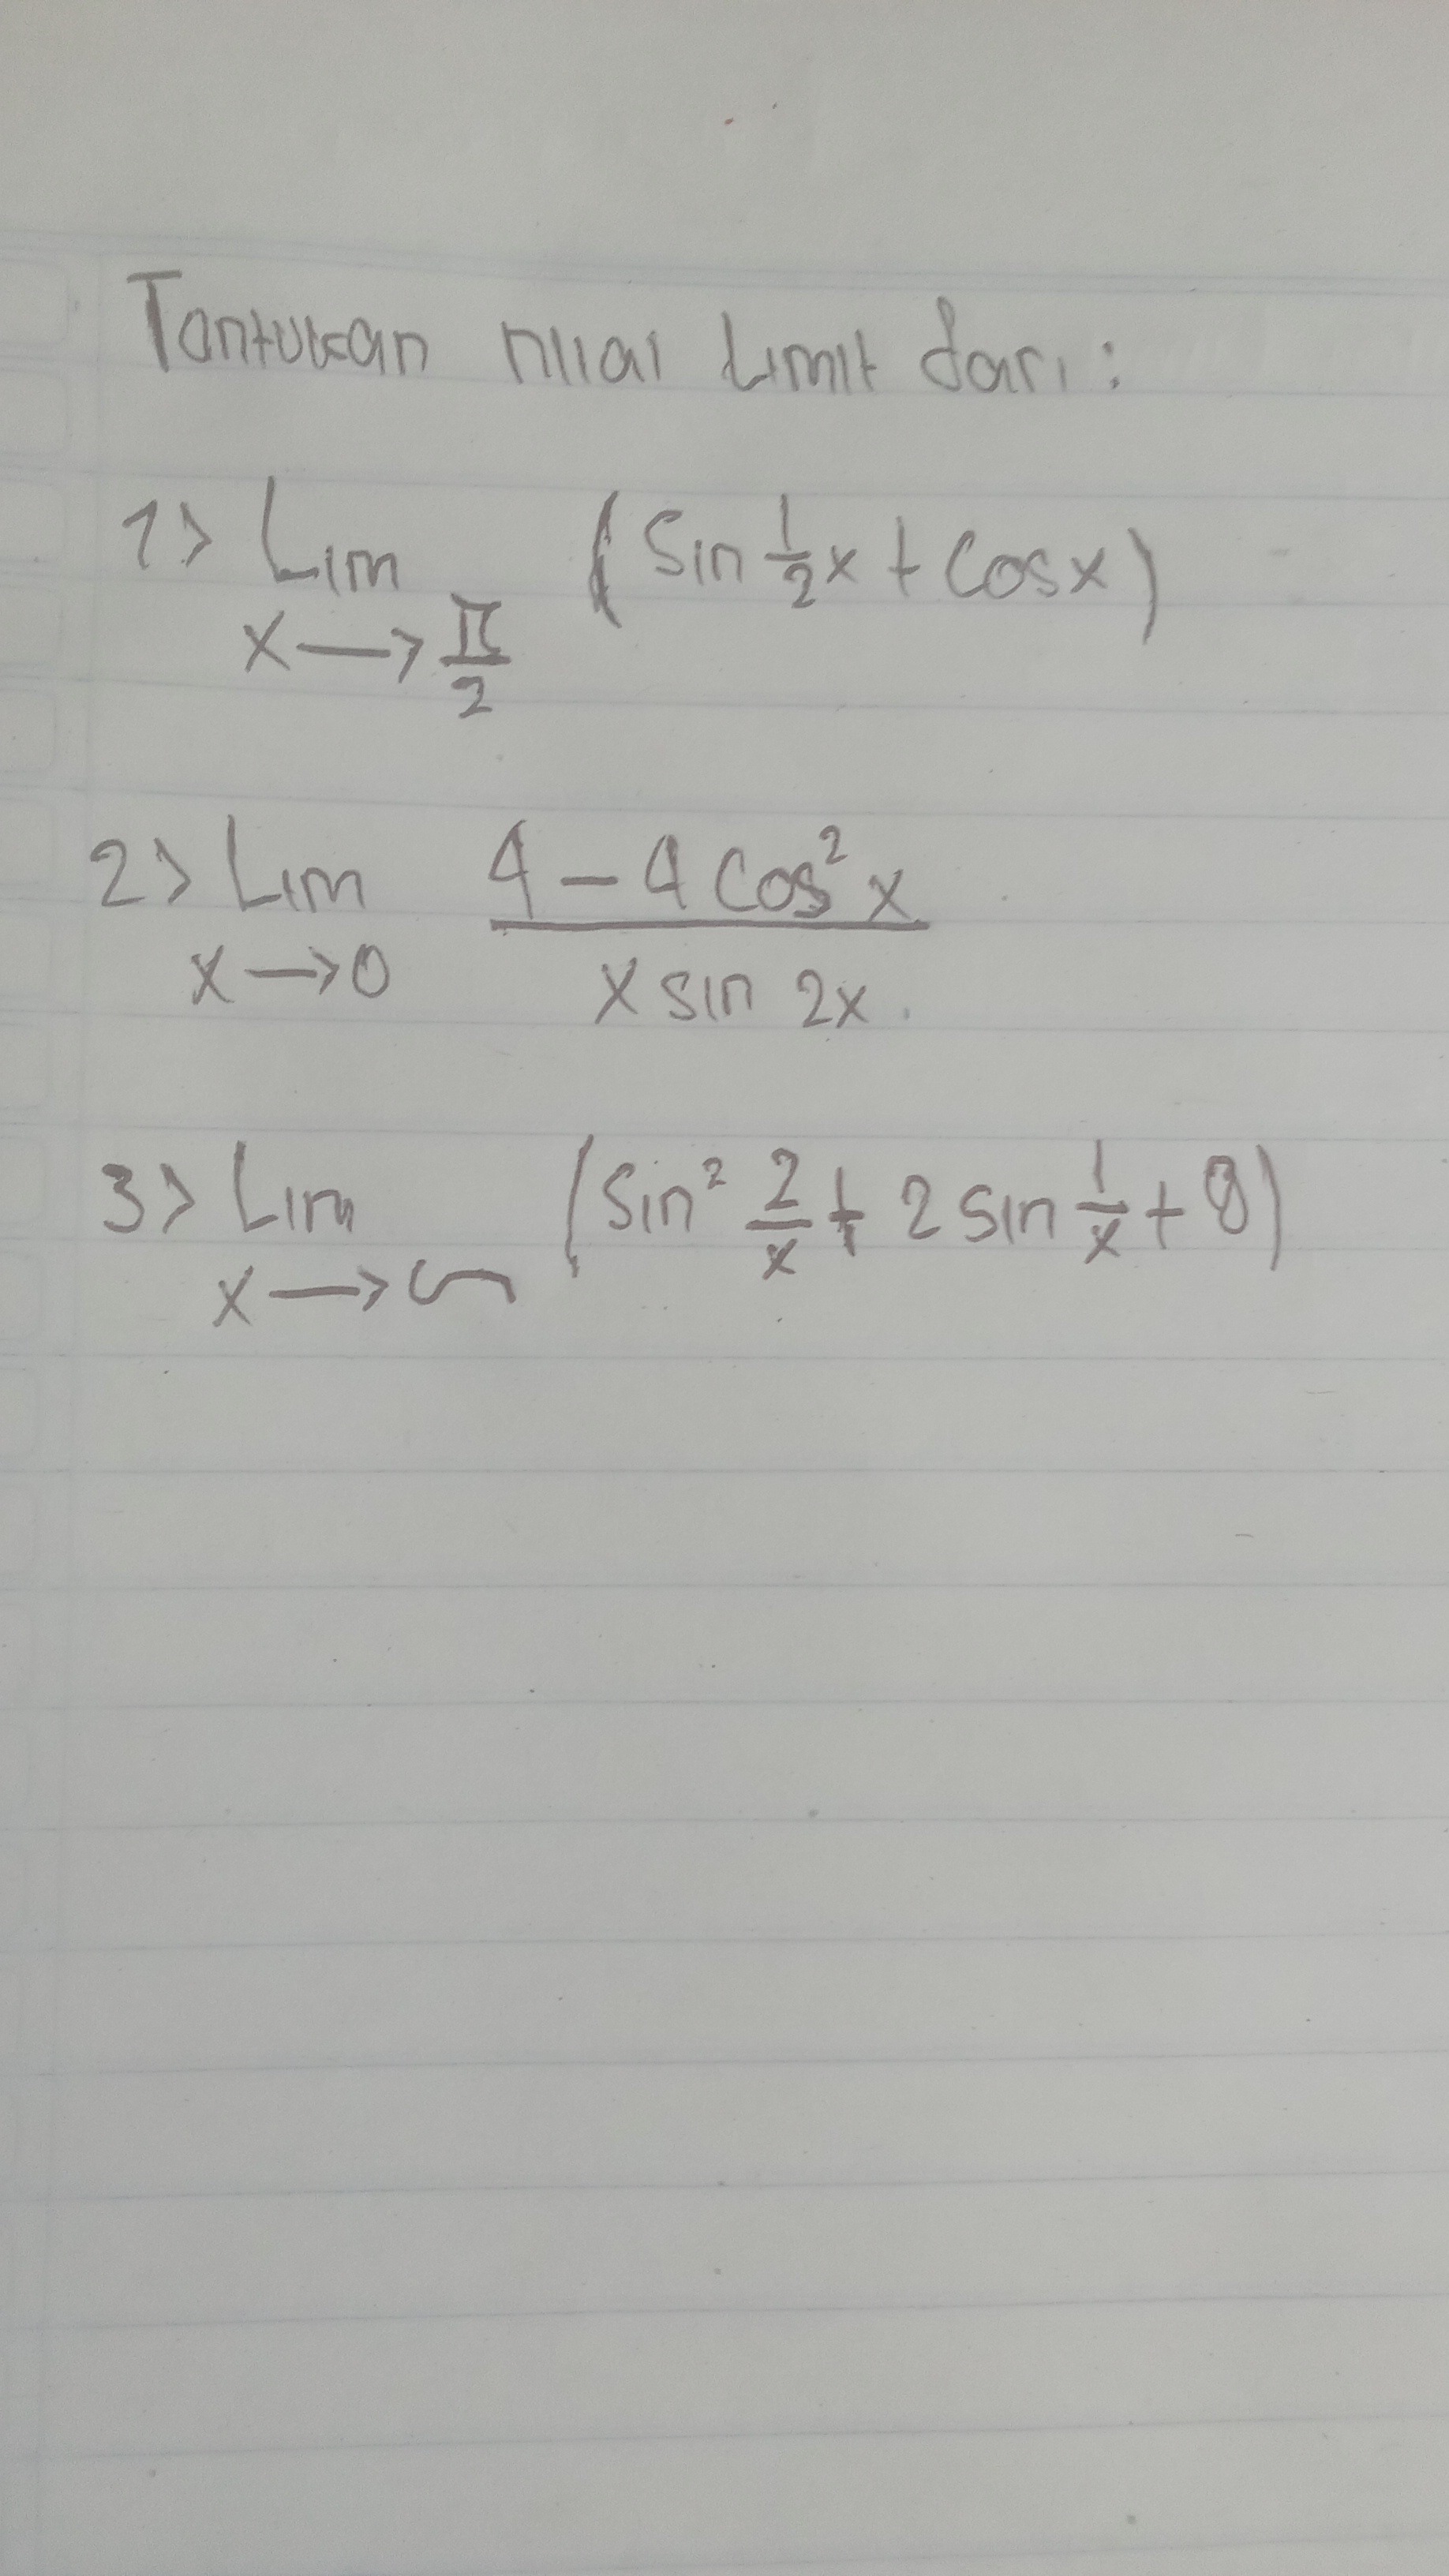 Tantukan nilai Limit dari :
1> Lim (Sin 1/2 x + Cos x)
x → π/2
2> Lim 4 - 4 Cos² x
x → 0 x sin 2x.
3> Lim (Sin² 2/x + 2 sin 1/x + 8)
x → ∞